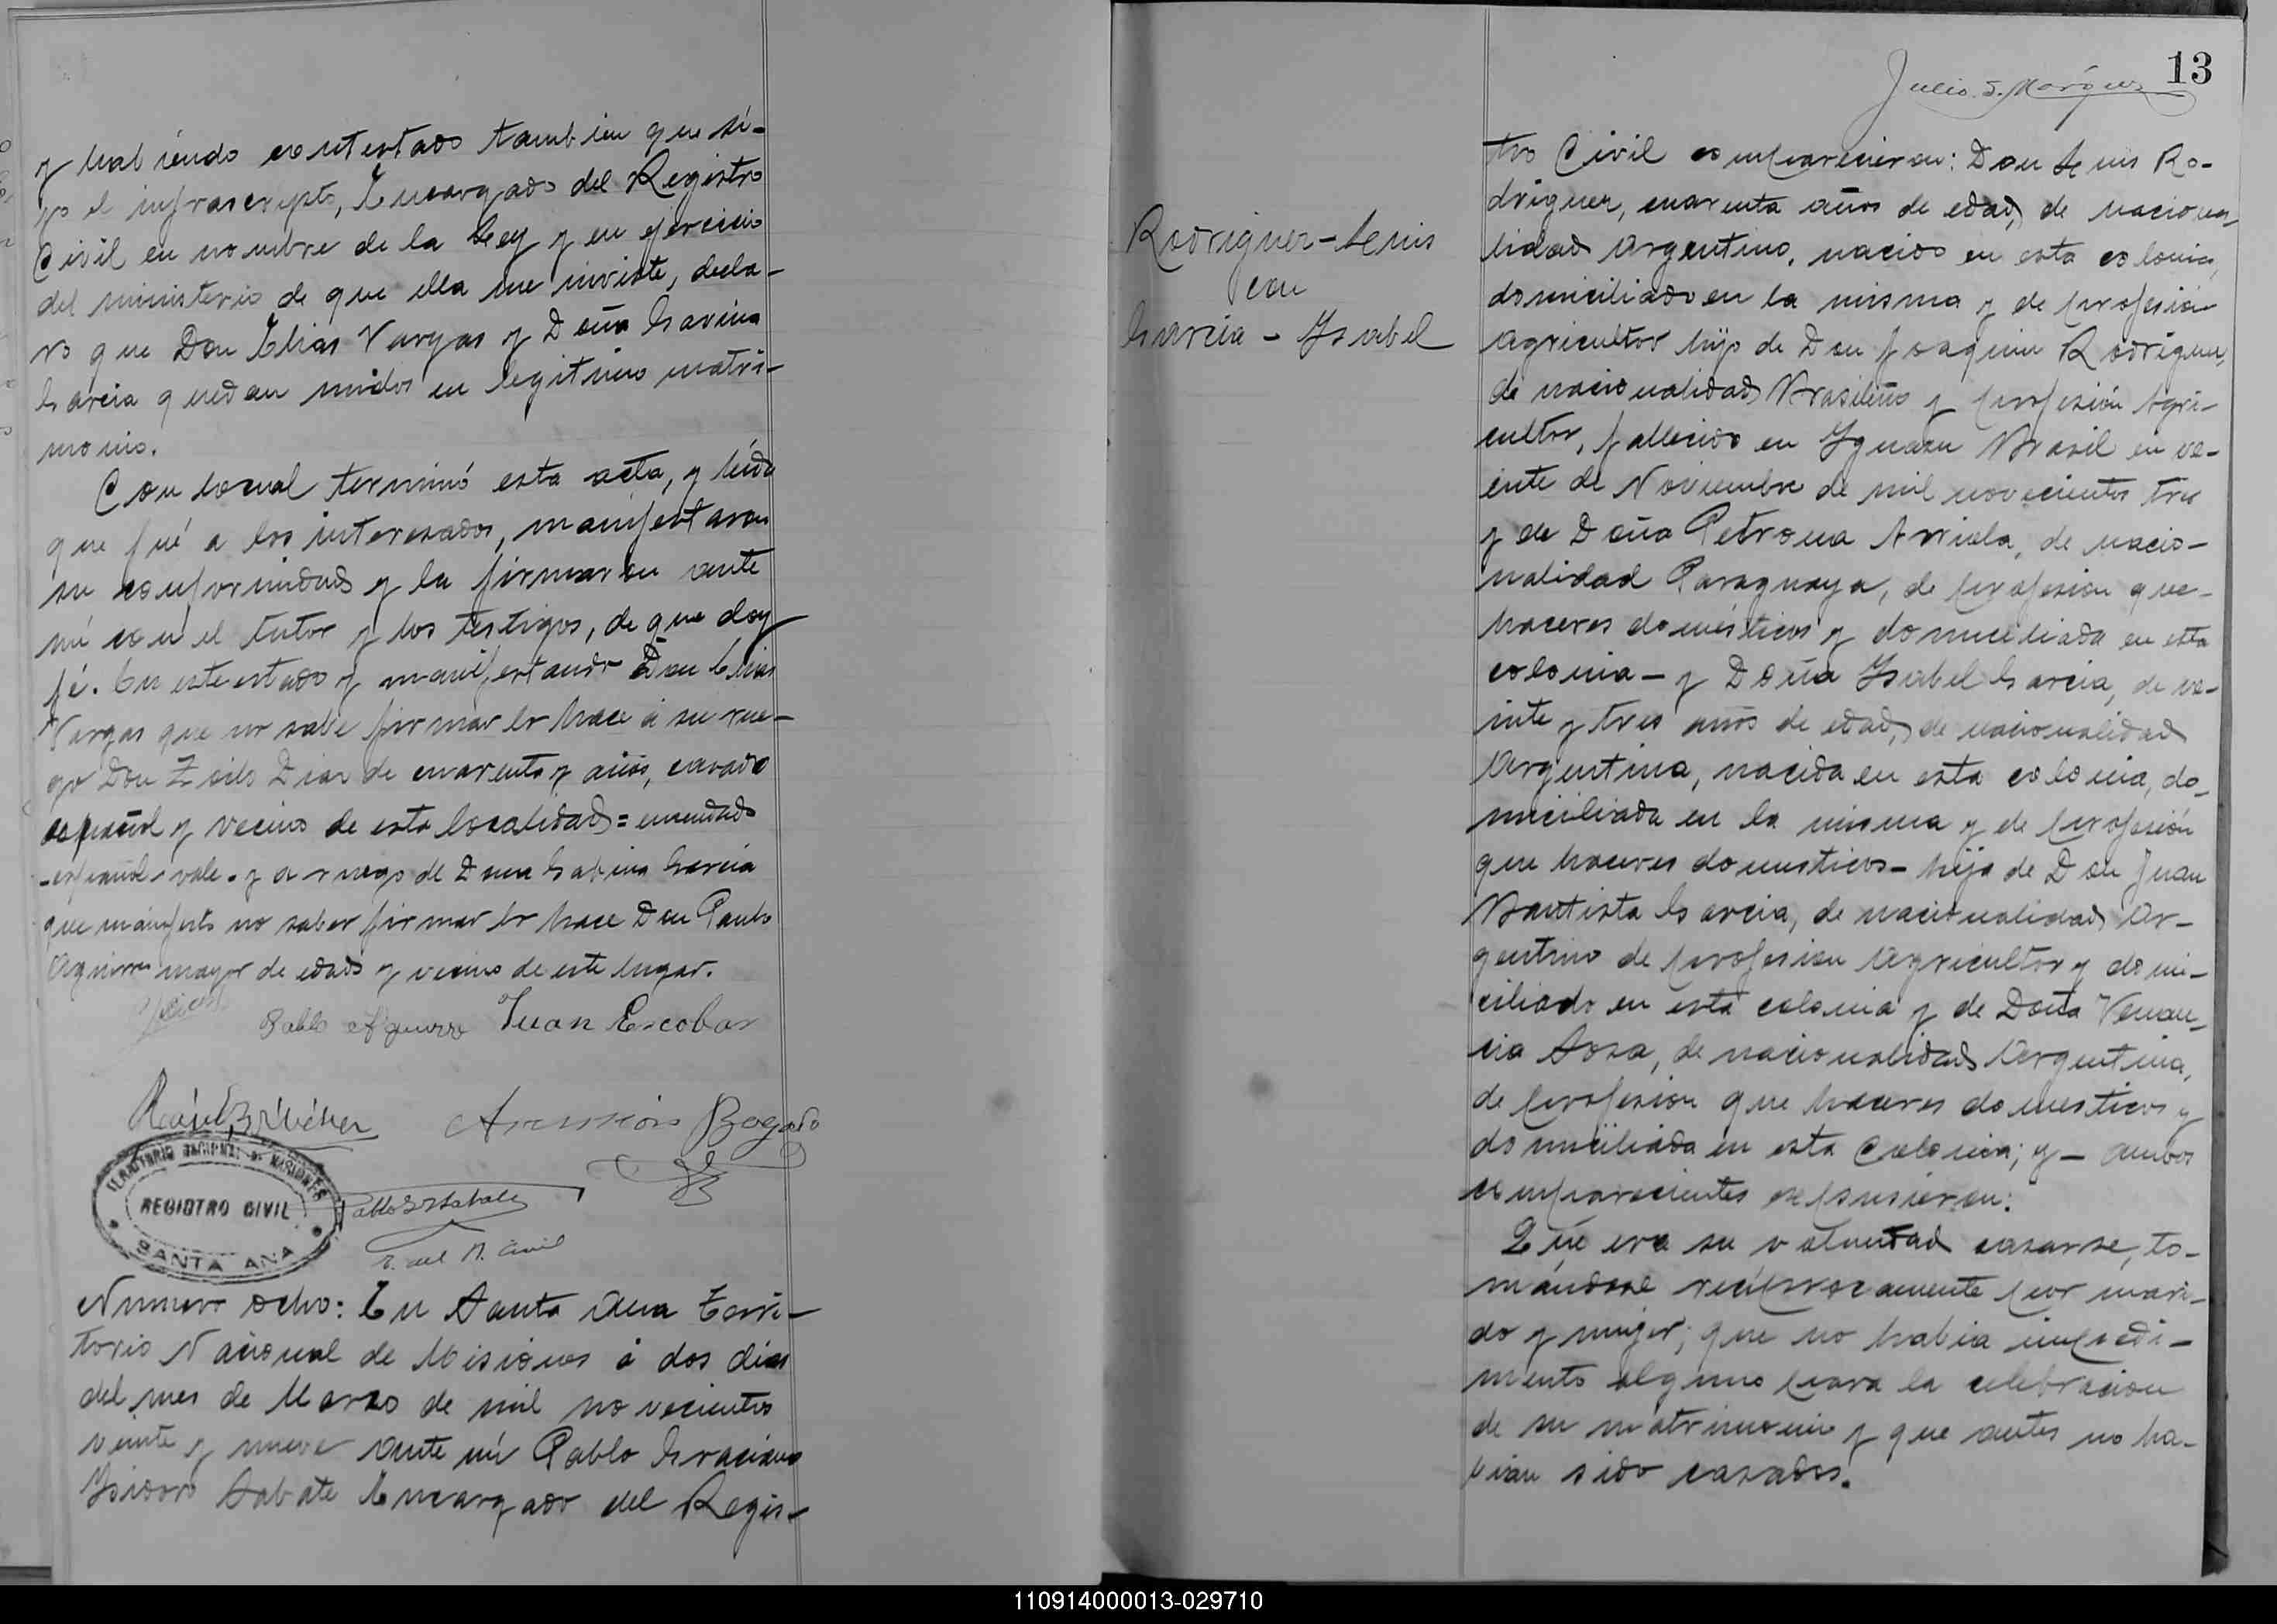 y habiendo contestado tambien que si-
yo el infrascripto, Encargado del Registro
Civil en nombre de la Ley y en ejercicio
del ministerio de que ella me inviste, decla-
ro que Don Elias Vargas y Doña Gavina
Garcia quedan unidos en legitimo matri-
monio.
Con locual terminó esta acta, y leida
que fué a los interesados, manifestaron
su conformidad y la firmaron ante
mi con el tutor y los testigos, de que doy
fé. En este estado y manifestando Don Elias
Vargas que no sabe firmar lo hace á su rue-
go Don Zoilo Diaz de cuarenta y años, casado
español y vecino de esta localidad = enmendado
-español- vale. y a ruego de Doña Gabina Garcia
que manifesto no saber firmar lo hace Don Paulo
Aguirre mayor de edad y vecino de este lugar.
Pablo Aguirre Juan Escobar
Asunción Bogado
TERRITORIO NACIONAL DE MISIONES
REGISTRO CIVIL
SANTA ANA
Pablo G I Sabate
E. del R. Civil
Numero ocho: En Santa Ana Terri-
torio Nacional de Misiones á dos dias
del mes de Marzo de mil novecientos
veinte y nueve ante mi Pablo Graciano
Ysidoro Sabate Encargado del Regis-
13
Julio S. Márquez
Rodriguez - Luis
con
Garcia - Ysabel
tro Civil comparecieron: Don Luis Ro-
driguez, cuarenta años de edad, de naciona-
lidad Argentino, nacido en esta colonia,
domiciliado en la misma y de profesión
Agricultor hijo de Don Joaquin Rodriguez,
de nacionalidad Brasileño y profesión Agri-
cultor, fallecido en Yguazu Brasil en ve-
inte de Noviembre de mil novecientos tres
y de Doña Petrona Arriola, de nacio-
nalidad Paraguaya, de profesion que-
haceres domésticos y domiciliada en esta
colonia - y Doña Ysabel Garcia, de ve-
inte y tres años de edad, de nacionalidad
Argentina, nacida en esta colonia, do-
miciliada en la misma y de profesión
que haceres domesticos - hija de Don Juan
Bautista Garcia, de nacionalidad Ar-
gentino de profesion Agricultor y domi-
ciliado en esta colonia y de Doña Venan-
cia Sosa, de nacionalidad Argentina,
de profesion que haceres domesticos y
domiciliada en esta Colonia; y - ambos
comparecientes expusieron:
Que era su voluntad casarse, to-
mándose reciprocamente por mari-
do y mujer; que no habia impedi-
mento alguno para la celebracion
de su matrimonio y que antes no ha-
bian sido casados.
110914000013-029710